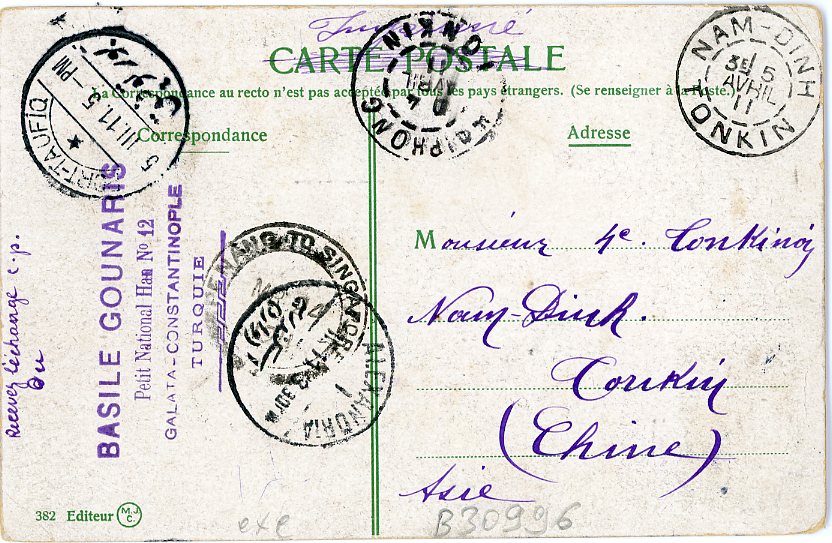 Imprimé
CARTE POSTALE
La Correspondance au recto n'est pas acceptée par tous les pays étrangers. (Se renseigner à la Poste.)
Correspondance
Adresse
PORT-TAUFIQ
5 III.11.5-PM
HAIPHONG
TONKIN
NAM-DINH
3E 5
AVRIL
11
TONKIN
BASILE GOUNARIS
Petit National Han No 12
GALATA-CONSTANTINOPLE
TURQUIE
Recevez l'échange c.p.
PENANG TO SINGAPORE
ALEXANDRIA
Monsieur 4e. Tonkinois
Nam-Dinh.
Tonkin
(Chine)
Asie
382 Editeur M.J.C.
exe
B30996